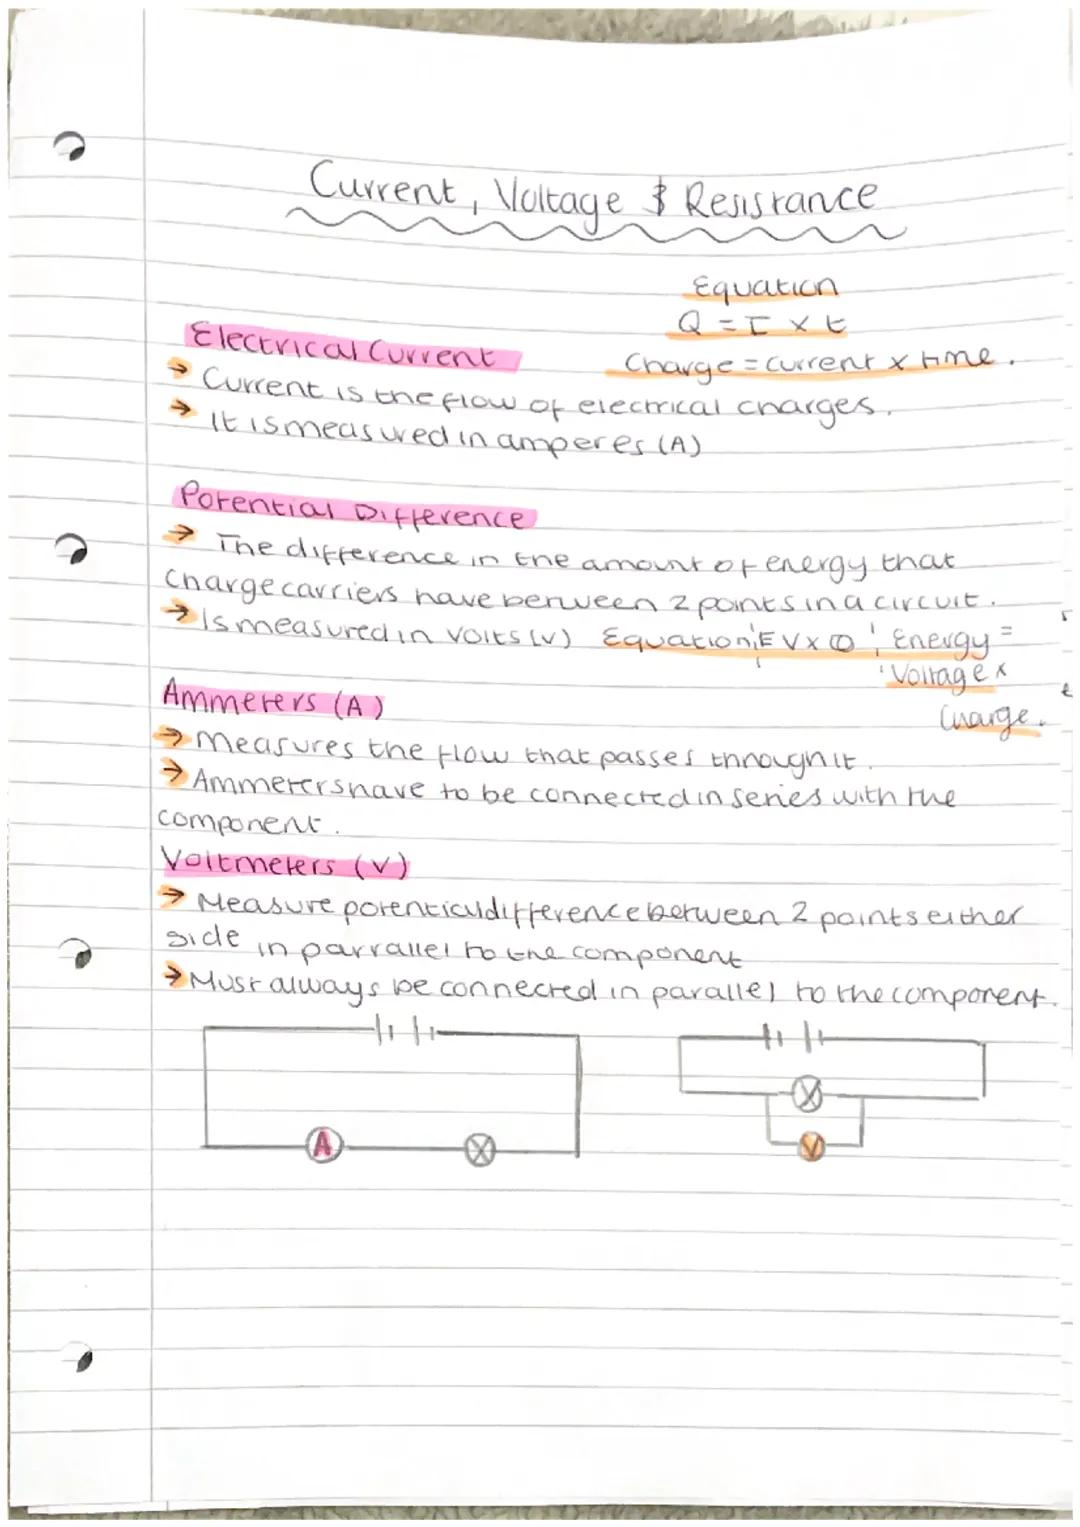 Current, Voltage & Resistance
Equation
Q = I x t
Electrical Current
Charge = current x time.
→ Current is the flow of electrical charges.
→ It is measured in amperes (A)
Potential Difference
→ The difference in the amount of energy that
charge carriers have between 2 points in a circuit.
→ Is measured in volts (v) Equation: E V x Q Energy =
Voltage x
Charge.
Ammeters (A)
→ Measures the flow that passes through it.
→ Ammeters have to be connected in series with the
component.
Voltmeters (V)
→ Measure potential difference between 2 points either
side in parrallel to the component
→ Must always be connected in parallel to the component.
A
V